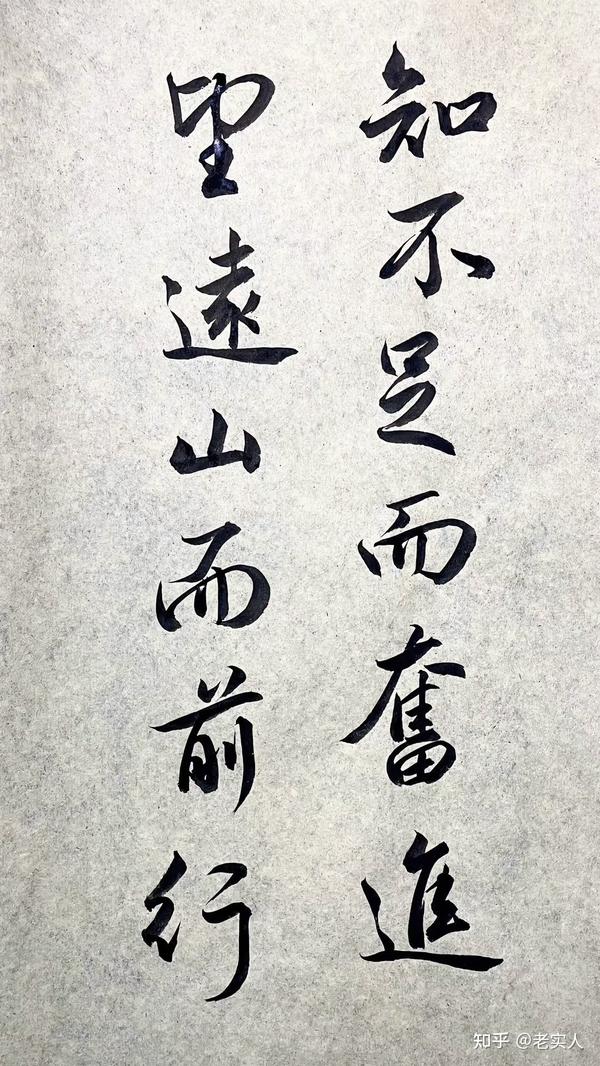 知不足而奮進
望遠山而前行
知乎 @老实人